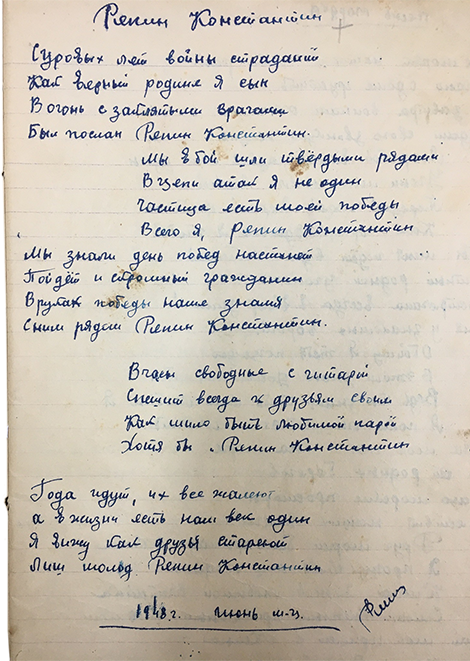 Репин Константин
Суровых лет войны страданий
Как верный родине я сын
В огонь с заклятыми врагами
Был послан Репин Константин.
Мы в бой шли твёрдыми рядами
В цепи атак я не один
Частица есть моей победы
Всего я, Репин Константин
Мы знали день побед настанет
Пойдёт и скромный гражданин
В руках победы наше знамя
С ним рядом Репин Константин.
В час свободные с гитарой
Спешит всегда к друзьям своим
Как мило быть любимой парой
Хотя бы . Репин Константин
Года идут, их все жалеют
а в жизни есть наш век один
Я вижу как друзья стареют
Лиш молод Репин Константин
1948 г. июнь м-ц.